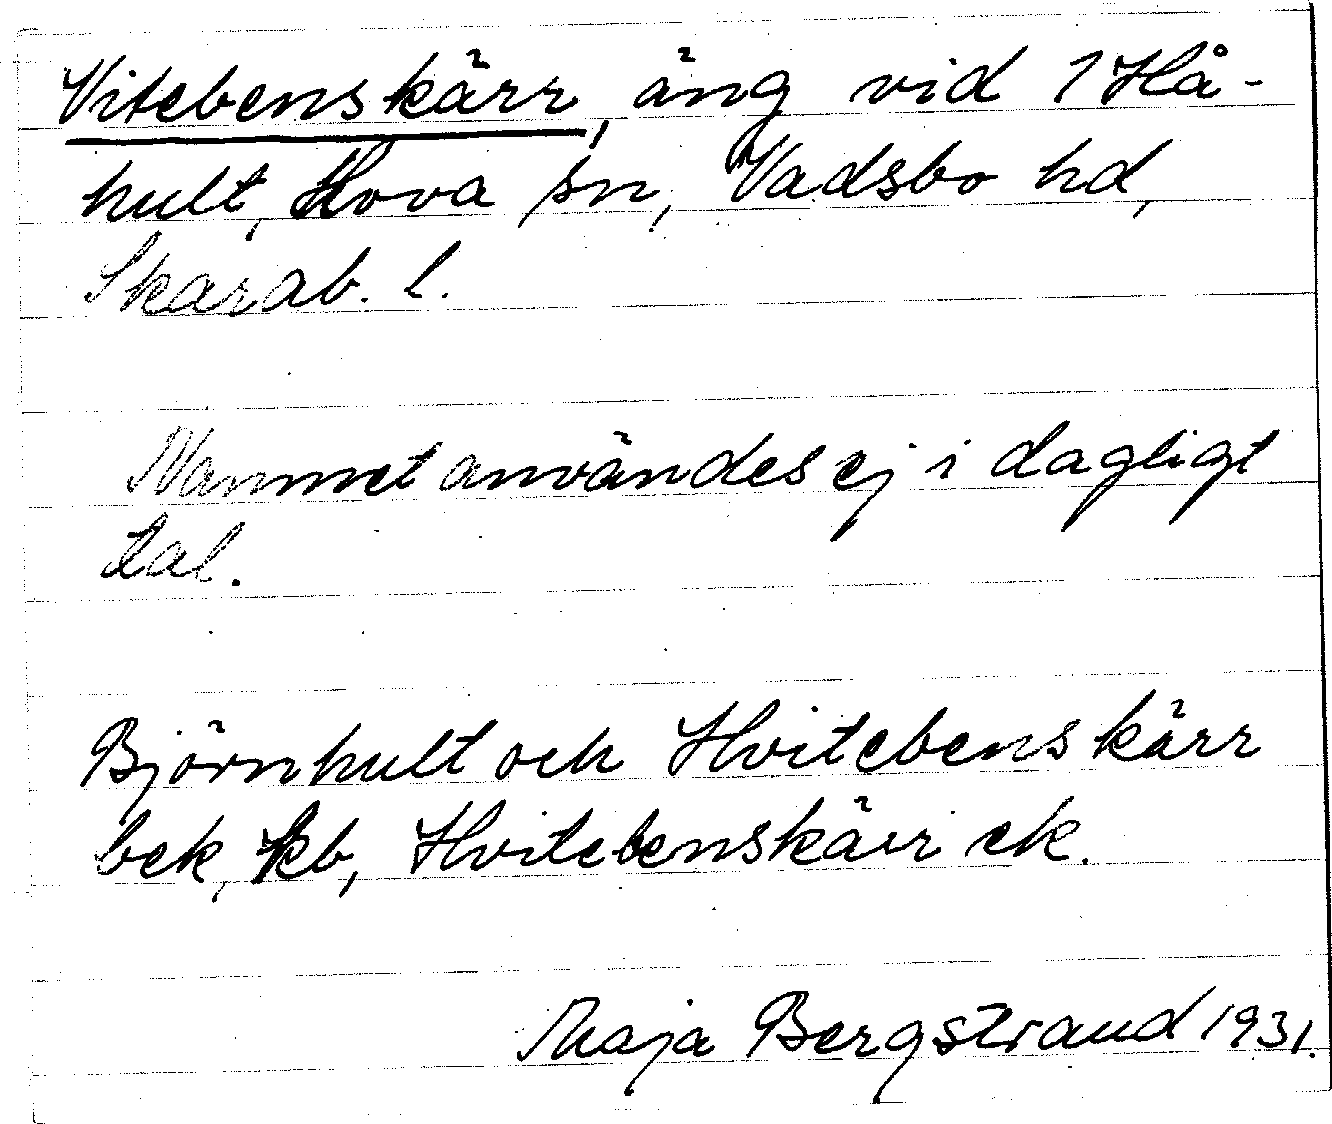 Vitebenskärr, äng vid 1 Hå-
hult, Hova sn, Vadsbo hd,
Skarab. l.
Namnet användes ej i dagligt
tal.
Björnhult och Hvitebenskärr
bek, kb, Hvitebenskärr ek.
Maja Bergstrand 1931.